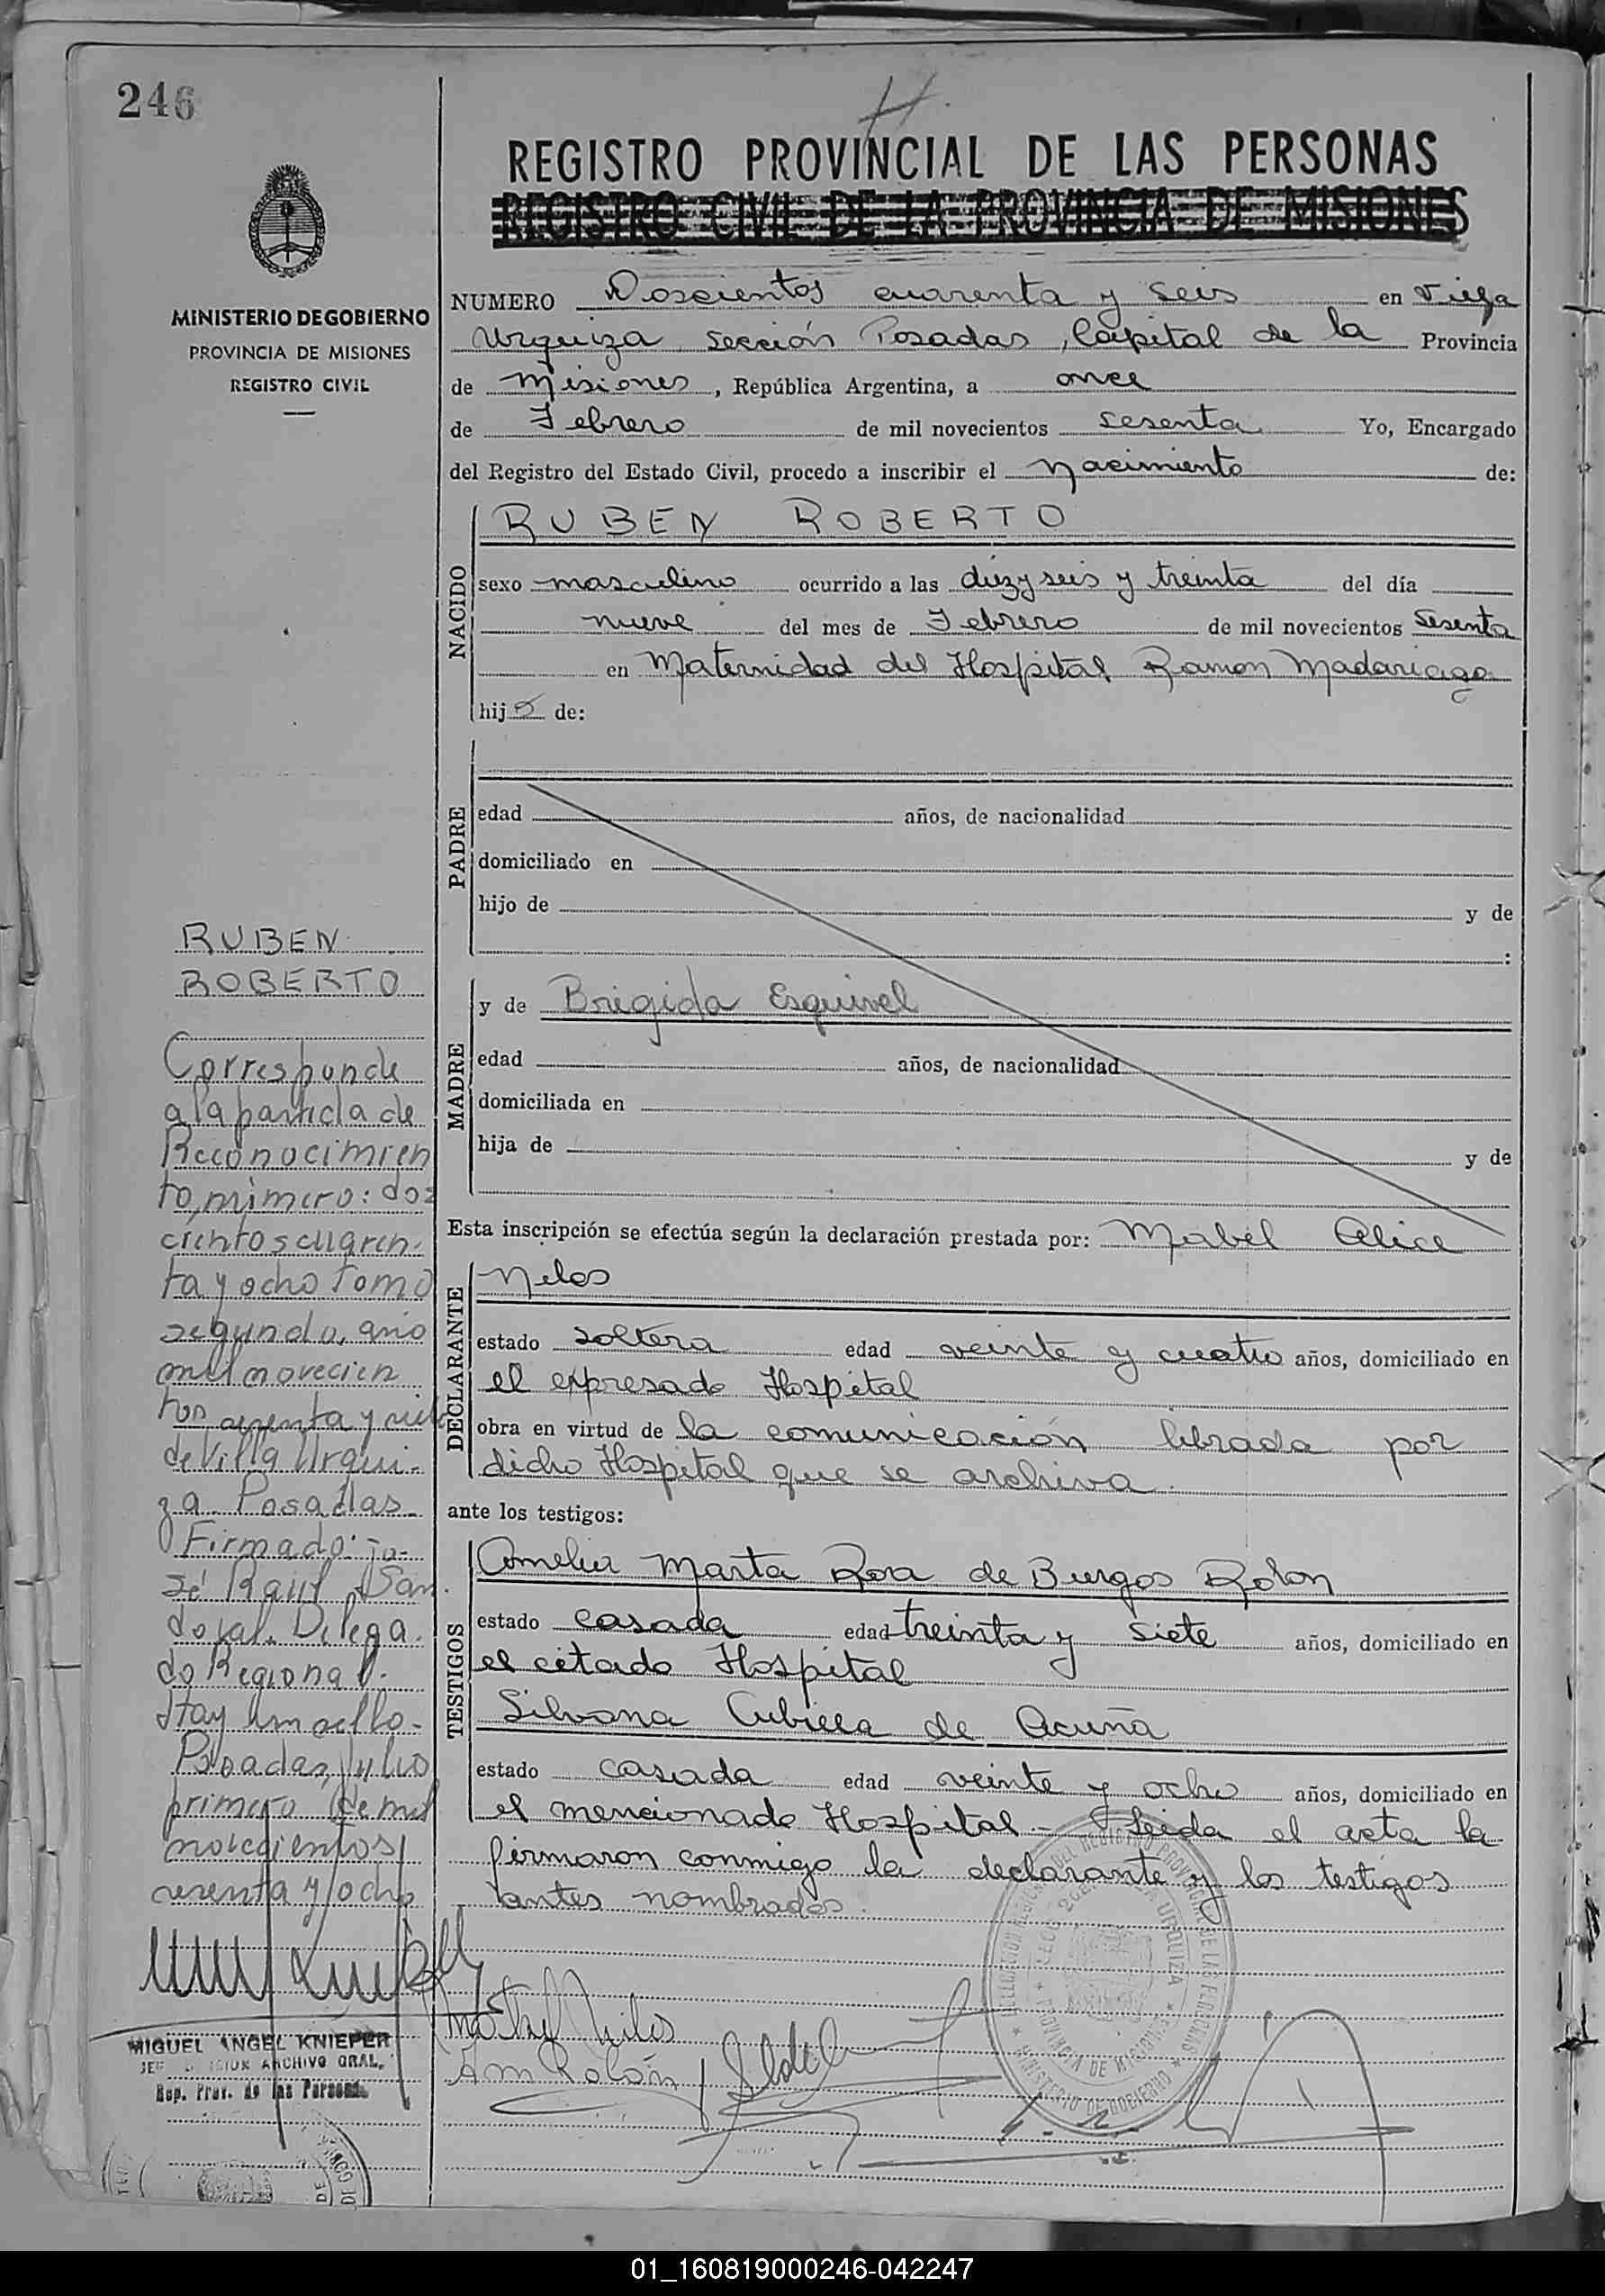 246
MINISTERIO DE GOBIERNO
PROVINCIA DE MISIONES
REGISTRO CIVIL
RUBEN
ROBERTO
Corresponde
a la partida de
Reconocimien
to, número: dos
cientos cuaren-
ta y ocho tomo
segundo, año
mil novecien
tos sesenta y siete
de Villa Urqui-
za Posadas-
Firmado: jo-
sé Raúl San
doval. Delega-
do Regional.
Hay un sello-
Posadas, julio
primero de mil
novecientos
sesenta y ocho
MIGUEL ANGEL KNIEPER
ARCHIVO GRAL.
Rep. Prov. de las Personas
REGISTRO PROVINCIAL DE LAS PERSONAS
REGISTRO CIVIL DE LA PROVINCIA DE MISIONES
NUMERO Doscientos cuarenta y seis en Villa
Urquiza sección Posadas, Capital de la Provincia
de Misiones, República Argentina, a once
de Febrero de mil novecientos sesenta Yo, Encargado
del Registro del Estado Civil, procedo a inscribir el Nacimiento de:
NACIDO
RUBEN ROBERTO
sexo masculino ocurrido a las diez y seis y treinta del día
nueve del mes de Febrero de mil novecientos sesenta
en Maternidad del Hospital Ramon Madariaga
hijo de:
PADRE
edad años, de nacionalidad
domiciliado en
hijo de y de
:
MADRE
y de Brigida Esquivel
edad años, de nacionalidad
domiciliada en
hija de y de
Esta inscripción se efectúa según la declaración prestada por: Mabel Alice
DECLARANTE
Milos
estado soltera edad veinte y cuatro años, domiciliado en
el expresado Hospital
obra en virtud de la comunicación librada por
dicho Hospital que se archiva.
ante los testigos:
TESTIGOS
Amelia Marta Rosa de Burgos Rolon
estado casada edad treinta y siete años, domiciliado en
el citado Hospital
Silvana Cubilla de Acuña
estado casada edad veinte y ocho años, domiciliado en
el mencionado Hospital.- Leida el acta la
firmaron conmigo la declarante y los testigos
antes nombrados.
Milos
A M Rolón
MINISTERIO DE GOBIERNO
PROVINCIA DE MISIONES
01_160819000246-042247